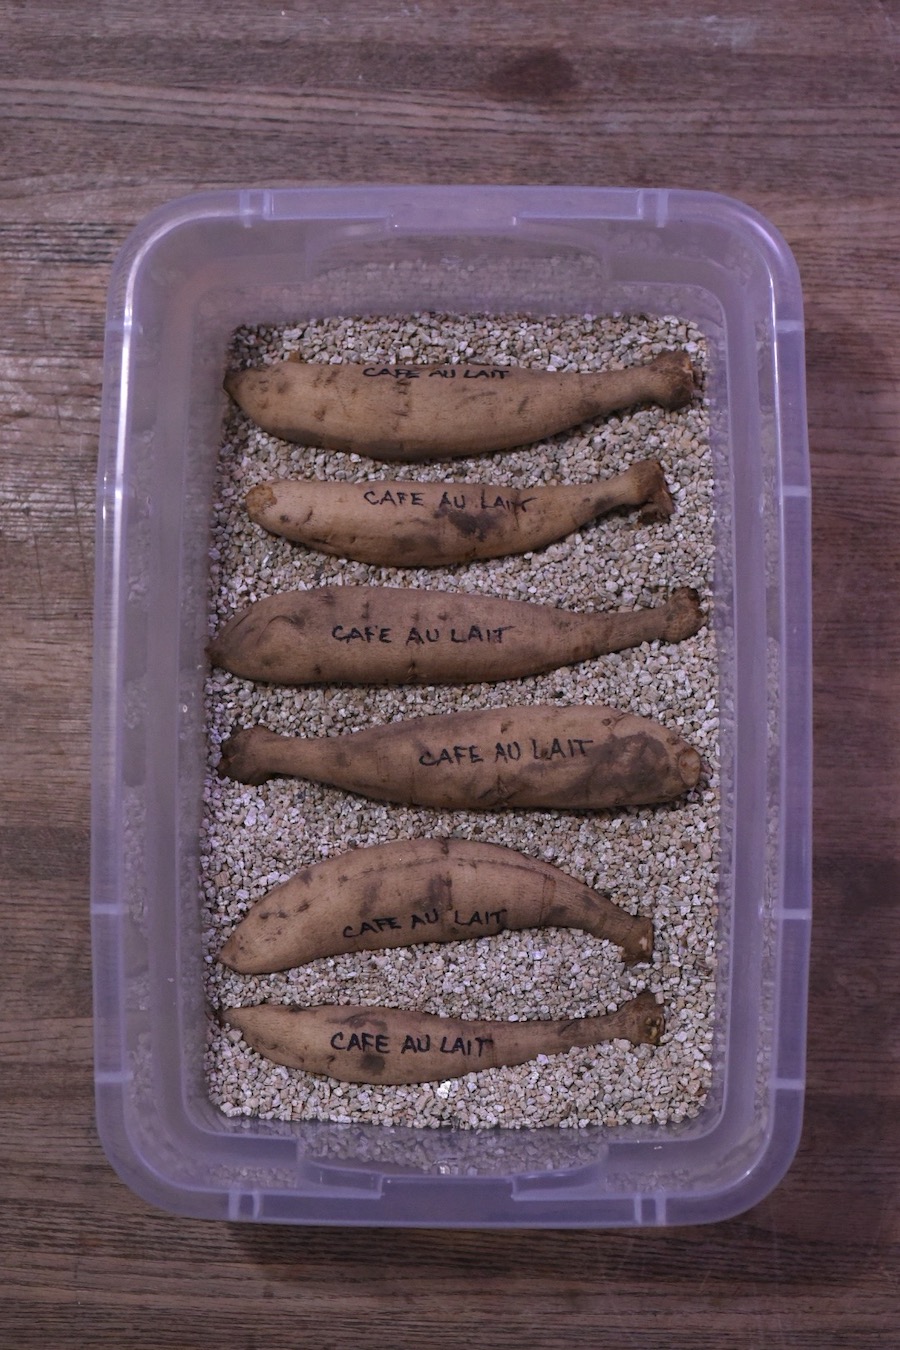 CAFE AU LAIT
CAFE AU LAIT
CAFE AU LAIT
CAFE AU LAIT
CAFE AU LAIT
CAFE AU LAIT